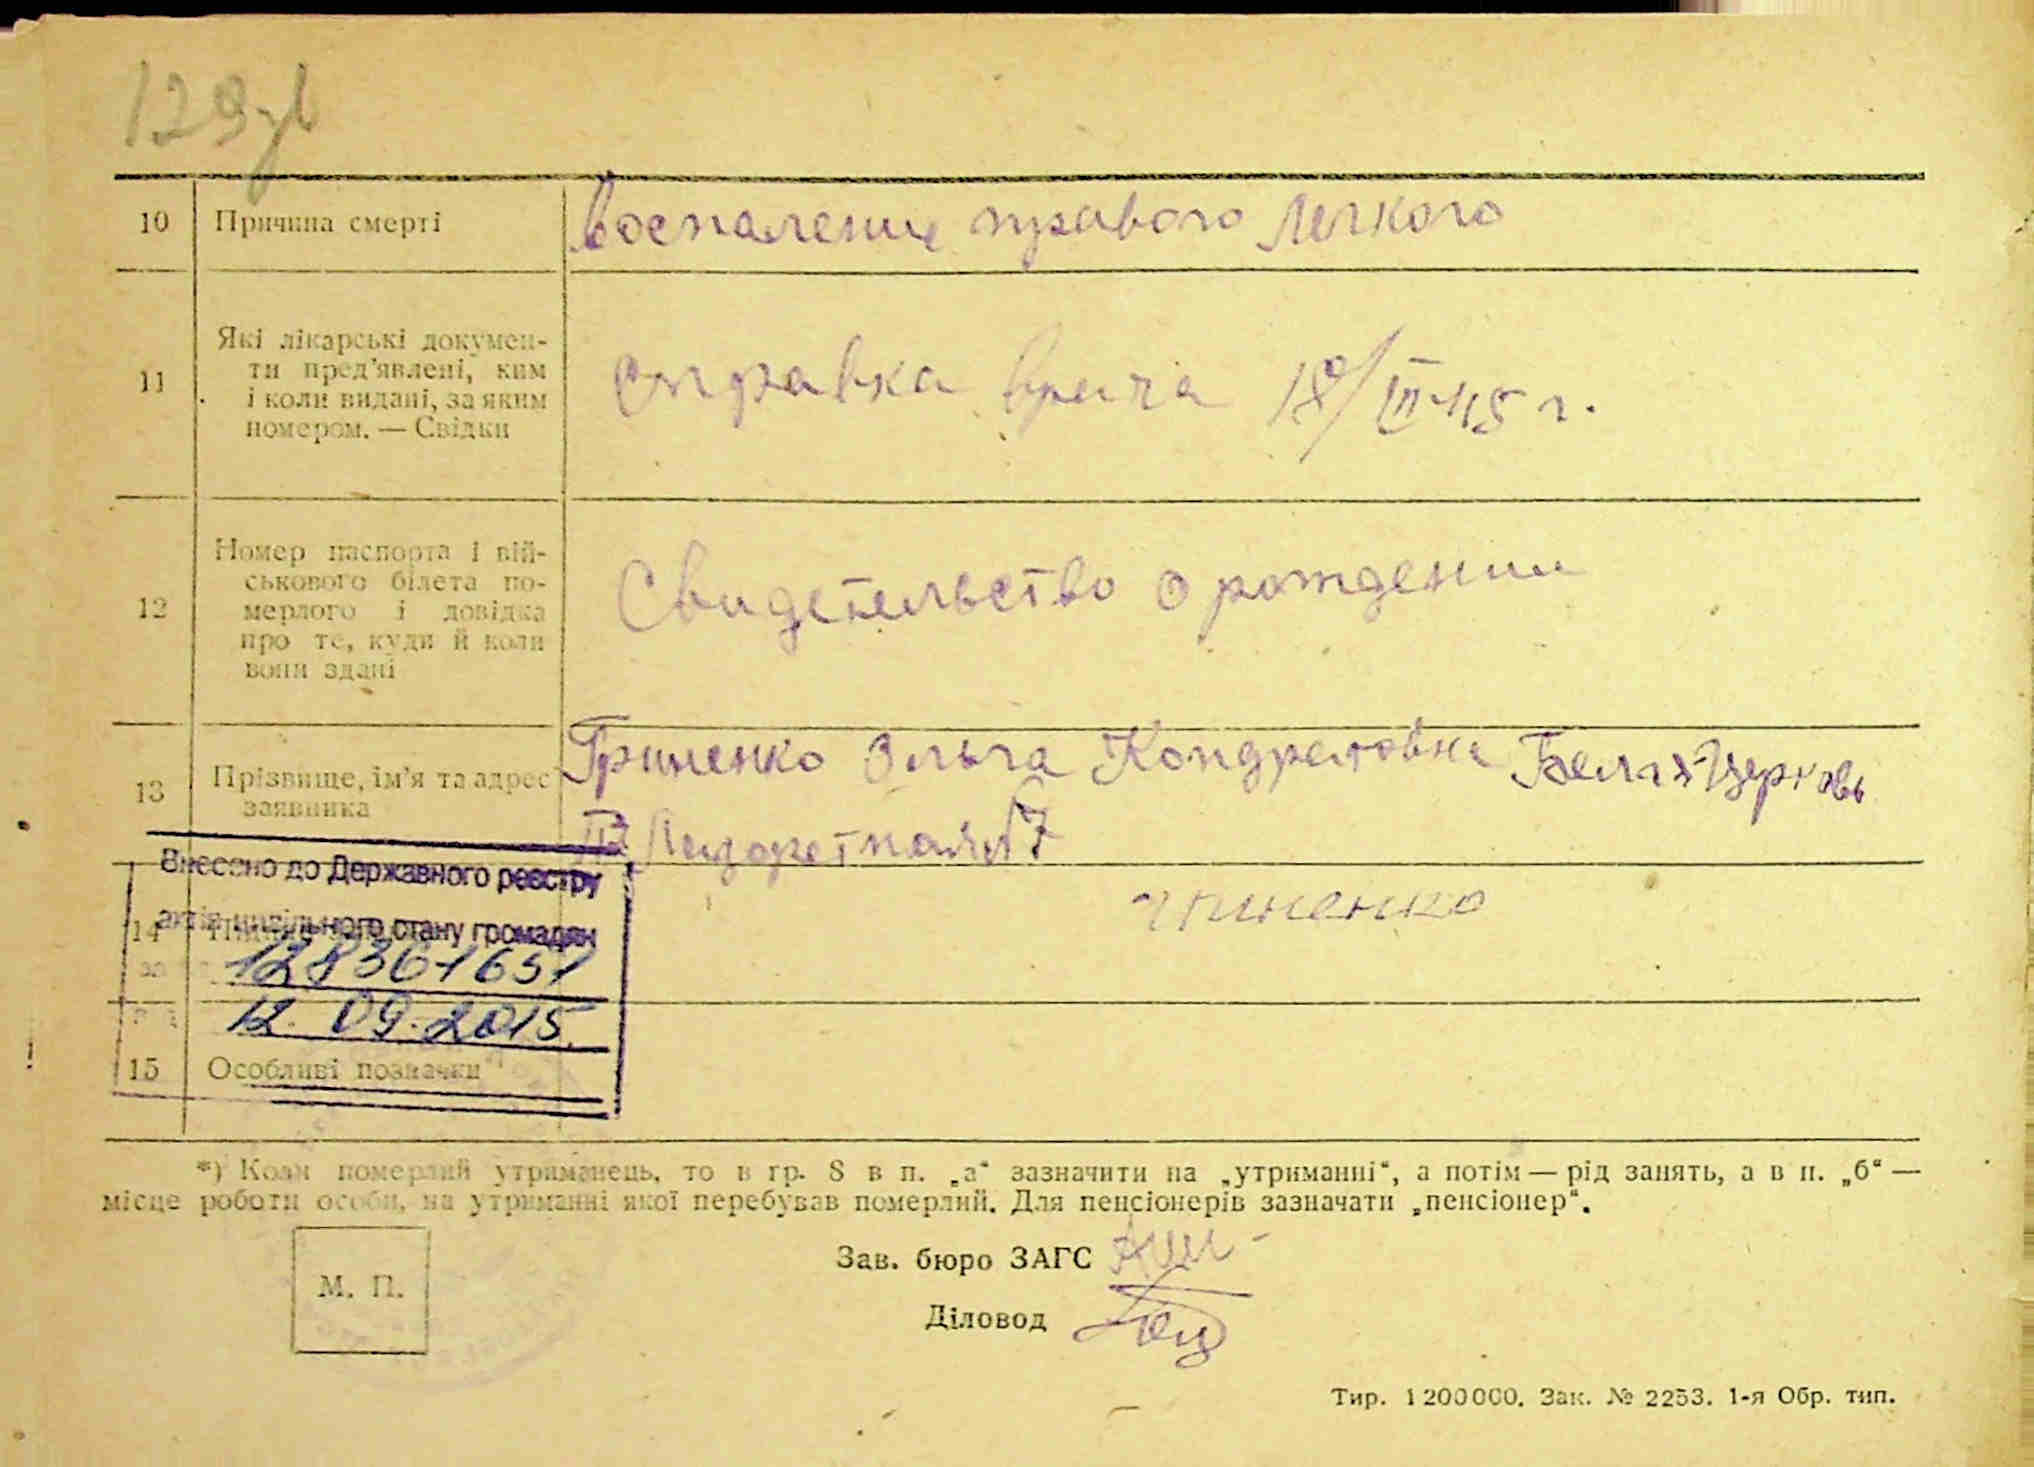 129зв
10 Причина смерті Воспаление правого легкого
11 Які лікарські докумен-
ти пред'явлені, ким
і коли видані, за яким
номером. — Свідки
Справка врача 18/III-45 г.
12 Номер паспорта і вій-
ськового білета по-
мерлого і довідка
про те, куди й коли
вони здані
Свидетельство о рождении
13 Прізвище, ім'я та адрес
заявника
Гриненко Ольга Кондратовна Белая-Церковь
Лазаретная 7
Внесено до Державного реєстру
актів цивільного стану громадян
14
Гриненко
128361651
12.09.2015.
15 Особливі позначки
*) Коли померлий утриманець, то в гр. 8 в п. „а“ зазначити на „утриманні“, а потім — рід занять, а в п. „б“ —
місце роботи особи, на утриманні якої перебував померлий. Для пенсіонерів зазначати „пенсіонер“.
М. П.
Зав. бюро ЗАГС
Діловод
Тир. 1200000. Зак. № 2253. 1-я Обр. тип.